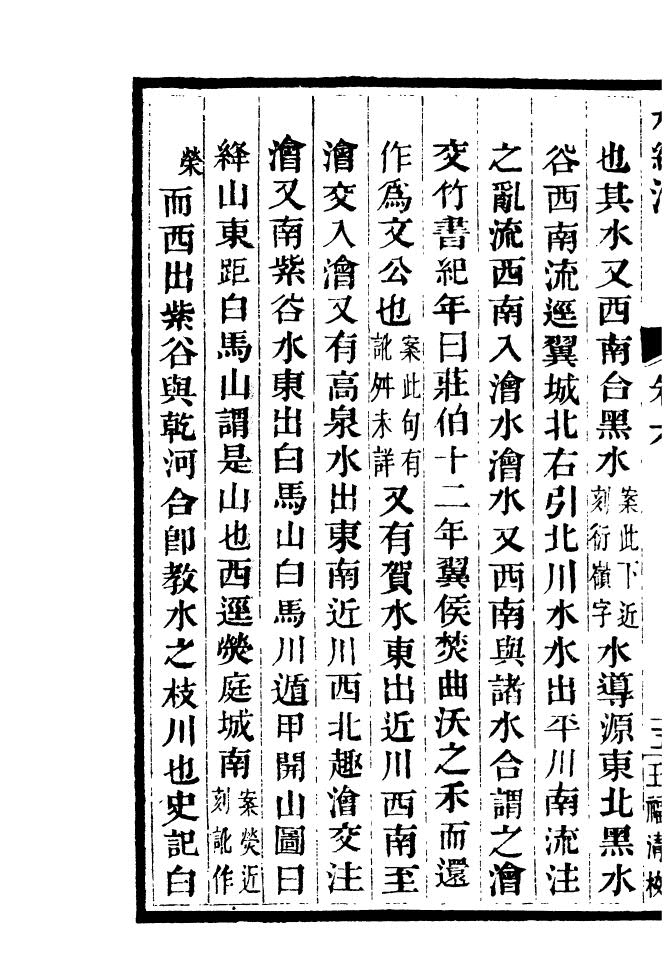 也其水又西南合黑水案此下近刻衍嶺字水導源東北黑水
谷西南流逕翼城北右引北川水水出平川南流注
之亂流西南入澮水澮水又西南與諸水合謂之澮
交竹書紀年曰莊伯十二年翼侯焚曲沃之禾而還
作爲文公也案此句有訛舛未詳又有賀水東出近川西南至
澮交入澮又有高泉水出東南近川西北趣澮交注
澮又南紫谷水東出白馬山白馬川遁甲開山圖曰
絳山東距白馬山謂是山也西逕熒庭城南案熒近刻訛作
榮而西出紫谷與乾河合卽教水之枝川也史記白